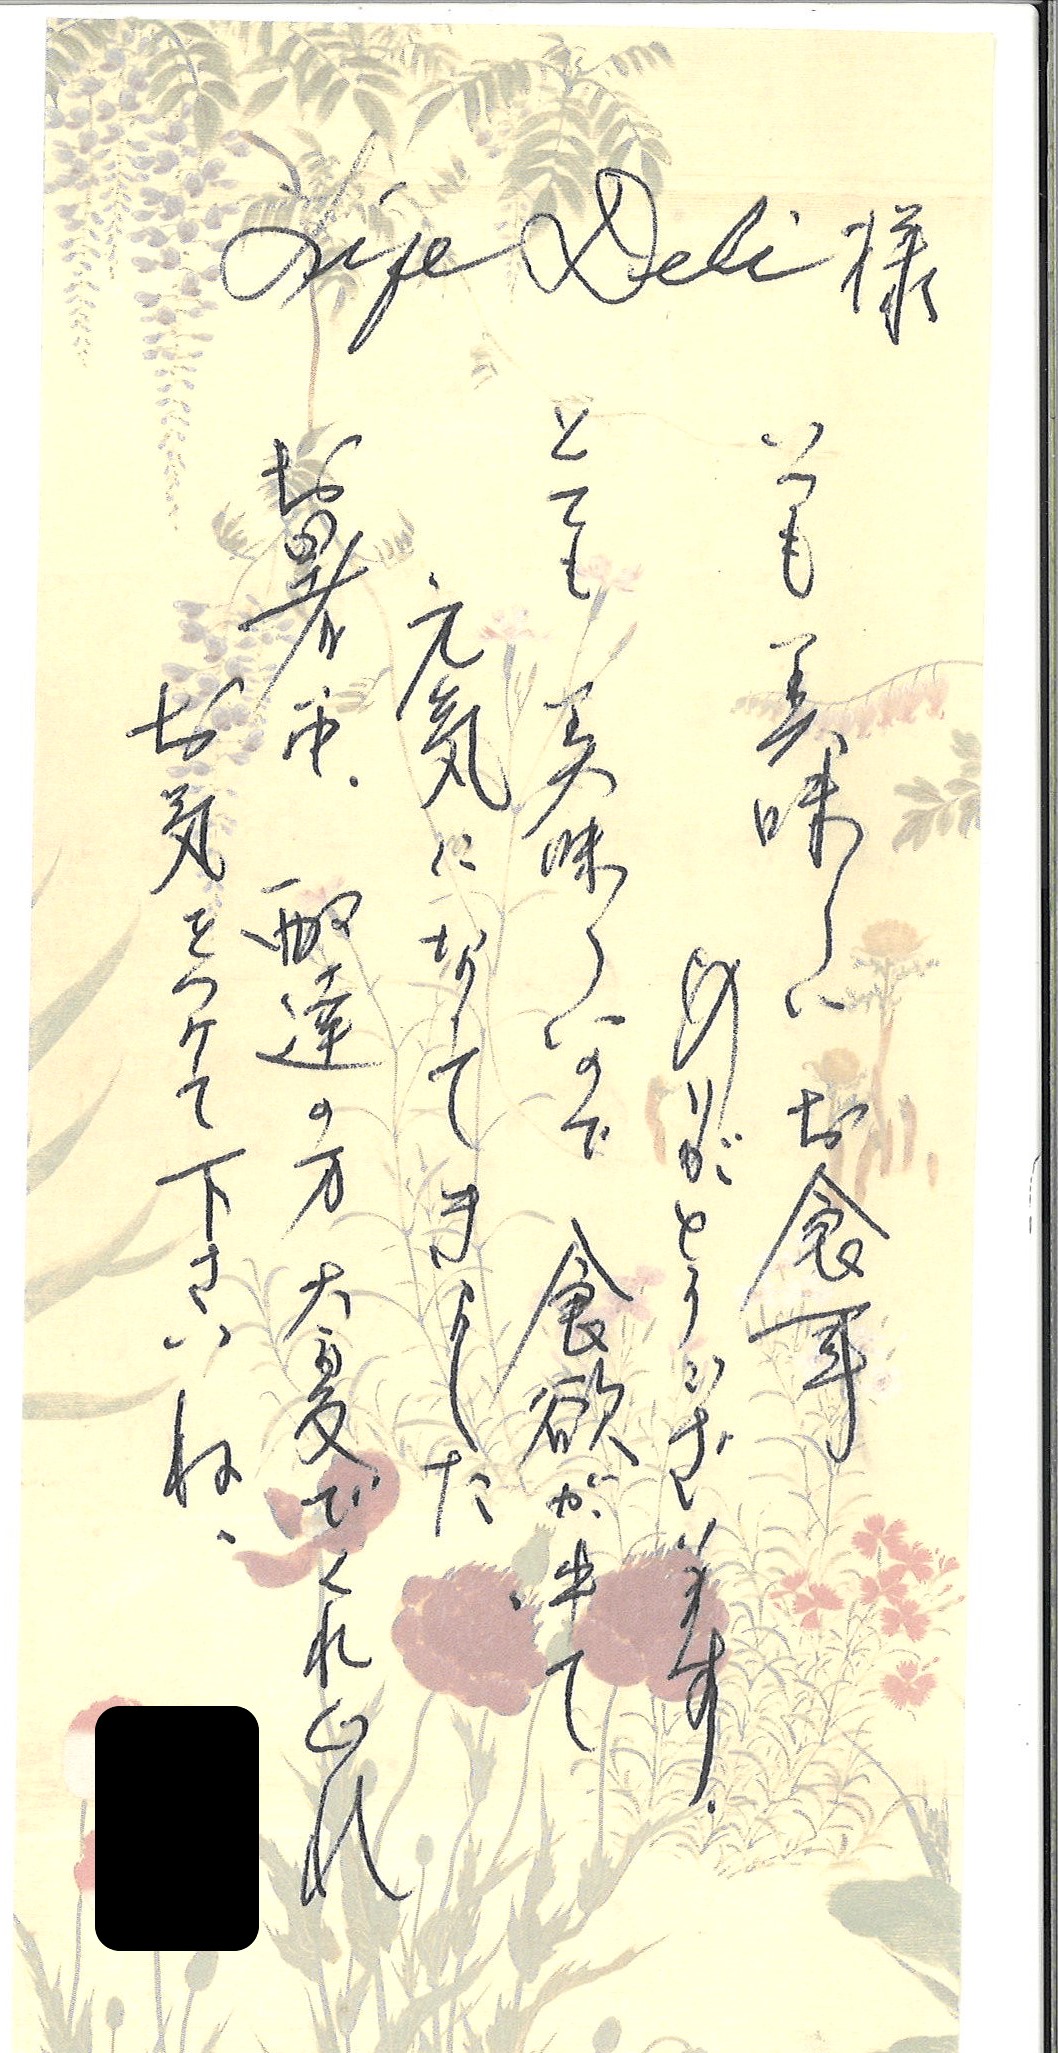 Life Deli 様
いつも美味しいお食事
ありがとうございます.
とても美味しいので食欲が出て
元気になってきました、
お暑い中、配達の方大変でくれぐれ
お気をつけて下さいね、